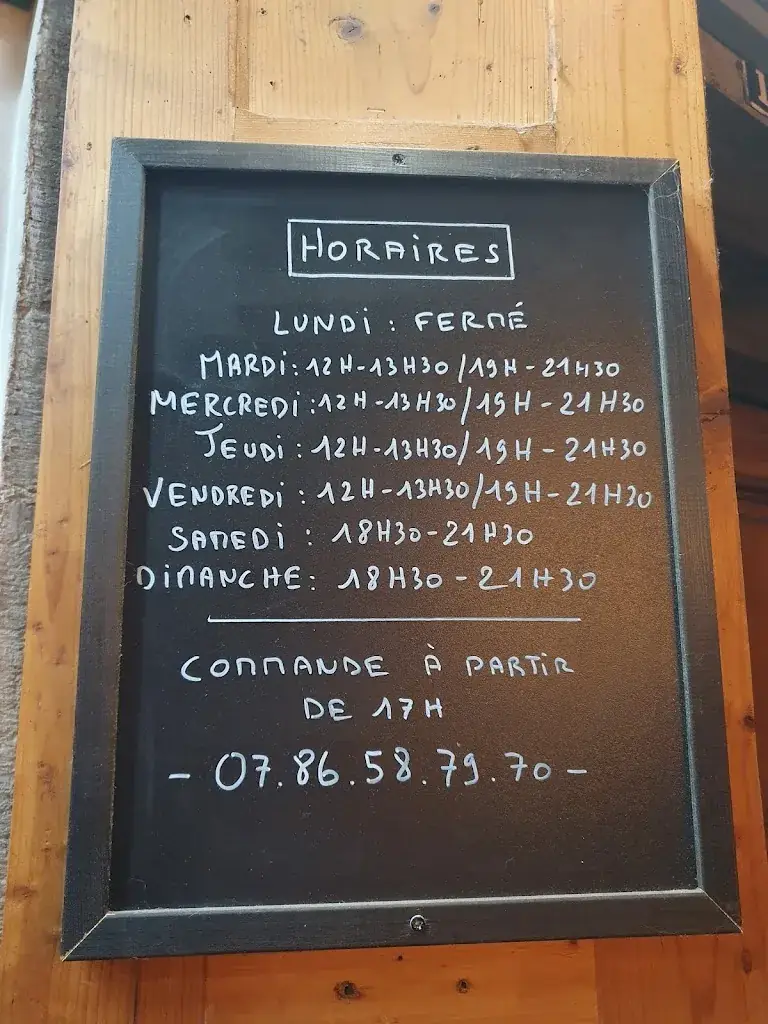 HORAIRES
LUNDI : FERMÉ
MARDI : 12H-13H30 / 19H - 21H30
MERCREDI : 12H-13H30 / 19H - 21H30
JEUDI : 12H-13H30 / 19H - 21H30
VENDREDI : 12H-13H30 / 19H - 21H30
SAMEDI : 18H30-21H30
DIMANCHE : 18H30 - 21H30
COMMANDE À PARTIR
DE 17H
- 07.86.58.79.70 -